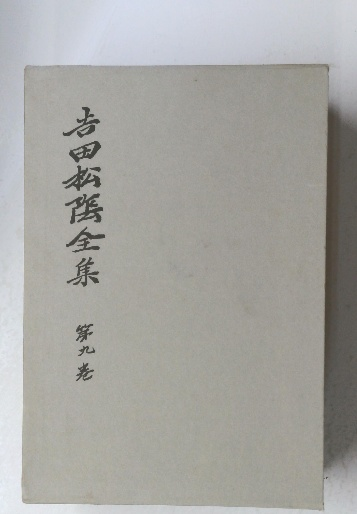 吉田松陰全集
第九巻